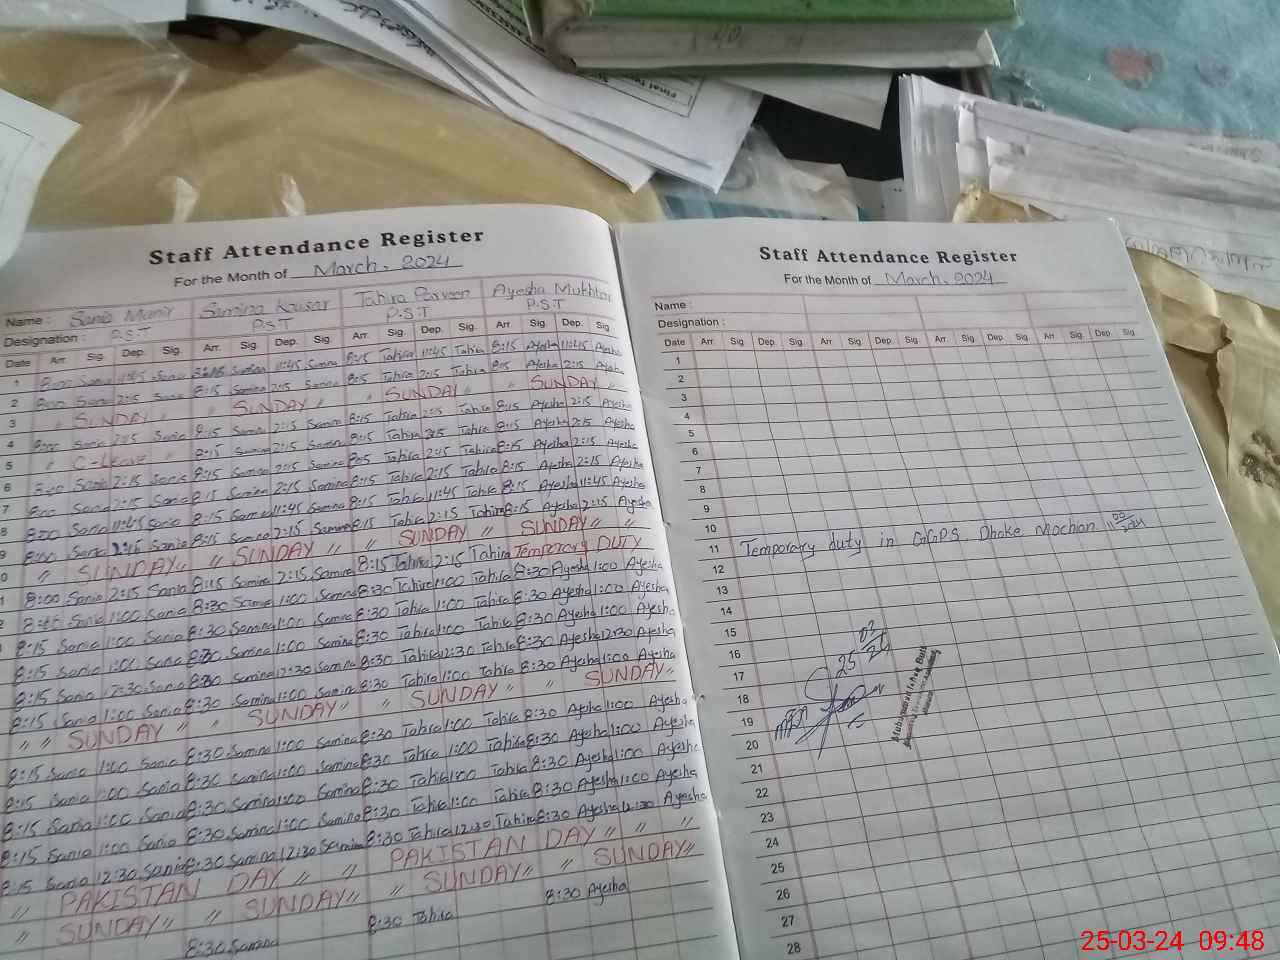 Staff Attendance Register
For the Month of March, 2024
Name : Sania Munir Samina Kousar Tahira Parveen Ayesha Mukhtar
Designation : P.S.T P.S.T P.S.T P.S.T
Date Arr. Sig. Dep. Sig. Arr. Sig. Dep. Sig. Arr. Sig. Dep. Sig. Arr. Sig. Dep. Sig.
1 8:00 Sania 11:45 Sania 8:15 Samina 11:45 Samina 8:15 Tahira 11:45 Tahira 8:15 Ayesha 11:45 Ayesha
2 8:00 Sania 2:15 Sania 8:15 Samina 2:15 Samina 8:15 Tahira 2:15 Tahira 8:15 Ayesha 2:15 Ayesha
3 " SUNDAY " " SUNDAY " " SUNDAY " " SUNDAY "
4 8:00 Sania 2:15 Sania 8:15 Samina 2:15 Samina 8:15 Tahira 2:15 Tahira 8:15 Ayesha 2:15 Ayesha
5 " C-Leave " 8:15 Samina 2:15 Samina 8:15 Tahira 2:15 Tahira 8:15 Ayesha 2:15 Ayesha
6 8:00 Sania 2:15 Sania 8:15 Samina 2:15 Samina Tahira 2:15 Tahira 8:15 Ayesha 2:15 Ayesha
7 8:00 Sania 2:15 Sania 8:15 Samina 2:15 Samina 8:15 Tahira 2:15 Tahira 8:15 Ayesha 2:15 Ayesha
8 8:00 Sania 11:45 Sania 8:15 Samina 11:45 Samina 8:15 Tahira 11:45 Tahira 8:15 Ayesha 11:45 Ayesha
9 8:00 Sania 2:15 Sania 8:15 Samina 2:15 Samina 8:15 Tahira 2:15 Tahira 8:15 Ayesha 2:15 Ayesha
0 " SUNDAY " " SUNDAY " " SUNDAY " SUNDAY " "
1 8:00 Sania 2:15 Sania 8:15 Samina 2:15 Samina 8:15 Tahira 2:15 Tahira Temporary DUTY
2 Sania 1:00 Sania 8:30 Samina 1:00 Samina 8:30 Tahira 1:00 Tahira 8:30 Ayesha 1:00 Ayesha
8:15 Sania 1:00 Sania 8:30 Samina 1:00 Samina 8:30 Tahira 1:00 Tahira 8:30 Ayesha 1:00 Ayesha
8:15 Sania 1:00 Sania 8:30 Samina 1:00 Samina 8:30 Tahira 1:00 Tahira 8:30 Ayesha 1:00 Ayesha
8:15 Sania 12:30 Sania 8:30 Samina 12:30 Samina 8:30 Tahira 12:30 Tahira 8:30 Ayesha 12:30 Ayesha
8:15 Sania 1:00 Sania 8:30 Samina 1:00 Samina 8:30 Tahira 1:00 Tahira 8:30 Ayesha 1:00 Ayesha
" " SUNDAY " " SUNDAY " " SUNDAY " " SUNDAY "
8:15 Sania 1:00 Sania 8:30 Samina 1:00 Samina 8:30 Tahira 1:00 Tahira 8:30 Ayesha 1:00 Ayesha
8:15 Sania 1:00 Sania 8:30 Samina 1:00 Samina 8:30 Tahira 1:00 Tahira 8:30 Ayesha 1:00 Ayesha
8:15 Sania 1:00 Sania 8:30 Samina 1:00 Samina 8:30 Tahira 1:00 Tahira 8:30 Ayesha 1:00 Ayesha
8:15 Sania 1:00 Sania 8:30 Samina 1:00 Samina 8:30 Tahira 1:00 Tahira 8:30 Ayesha 1:00 Ayesha
8:15 Sania 12:30 Sania 8:30 Samina 12:30 Samina 8:30 Tahira 12:30 Tahira 8:30 Ayesha 12:30 Ayesha
" PAKISTAN DAY " " PAKISTAN DAY " " "
" SUNDAY " " SUNDAY " " SUNDAY " " SUNDAY "
8:30 Samina 8:30 Tahira 8:30 Ayesha
Staff Attendance Register
For the Month of March, 2024
Name :
Designation :
Date Arr. Sig. Dep. Sig. Arr. Sig. Dep. Sig. Arr. Sig. Dep. Sig. Arr. Sig. Dep. Sig.
1
2
3
4
5
6
7
8
9
10
11 Temporary duty in GGPS. Dhoke Mochian
12
13
14
15
16
17
18
19
20
21
22
23
24
25
26
27
28
25-03-24 09:48